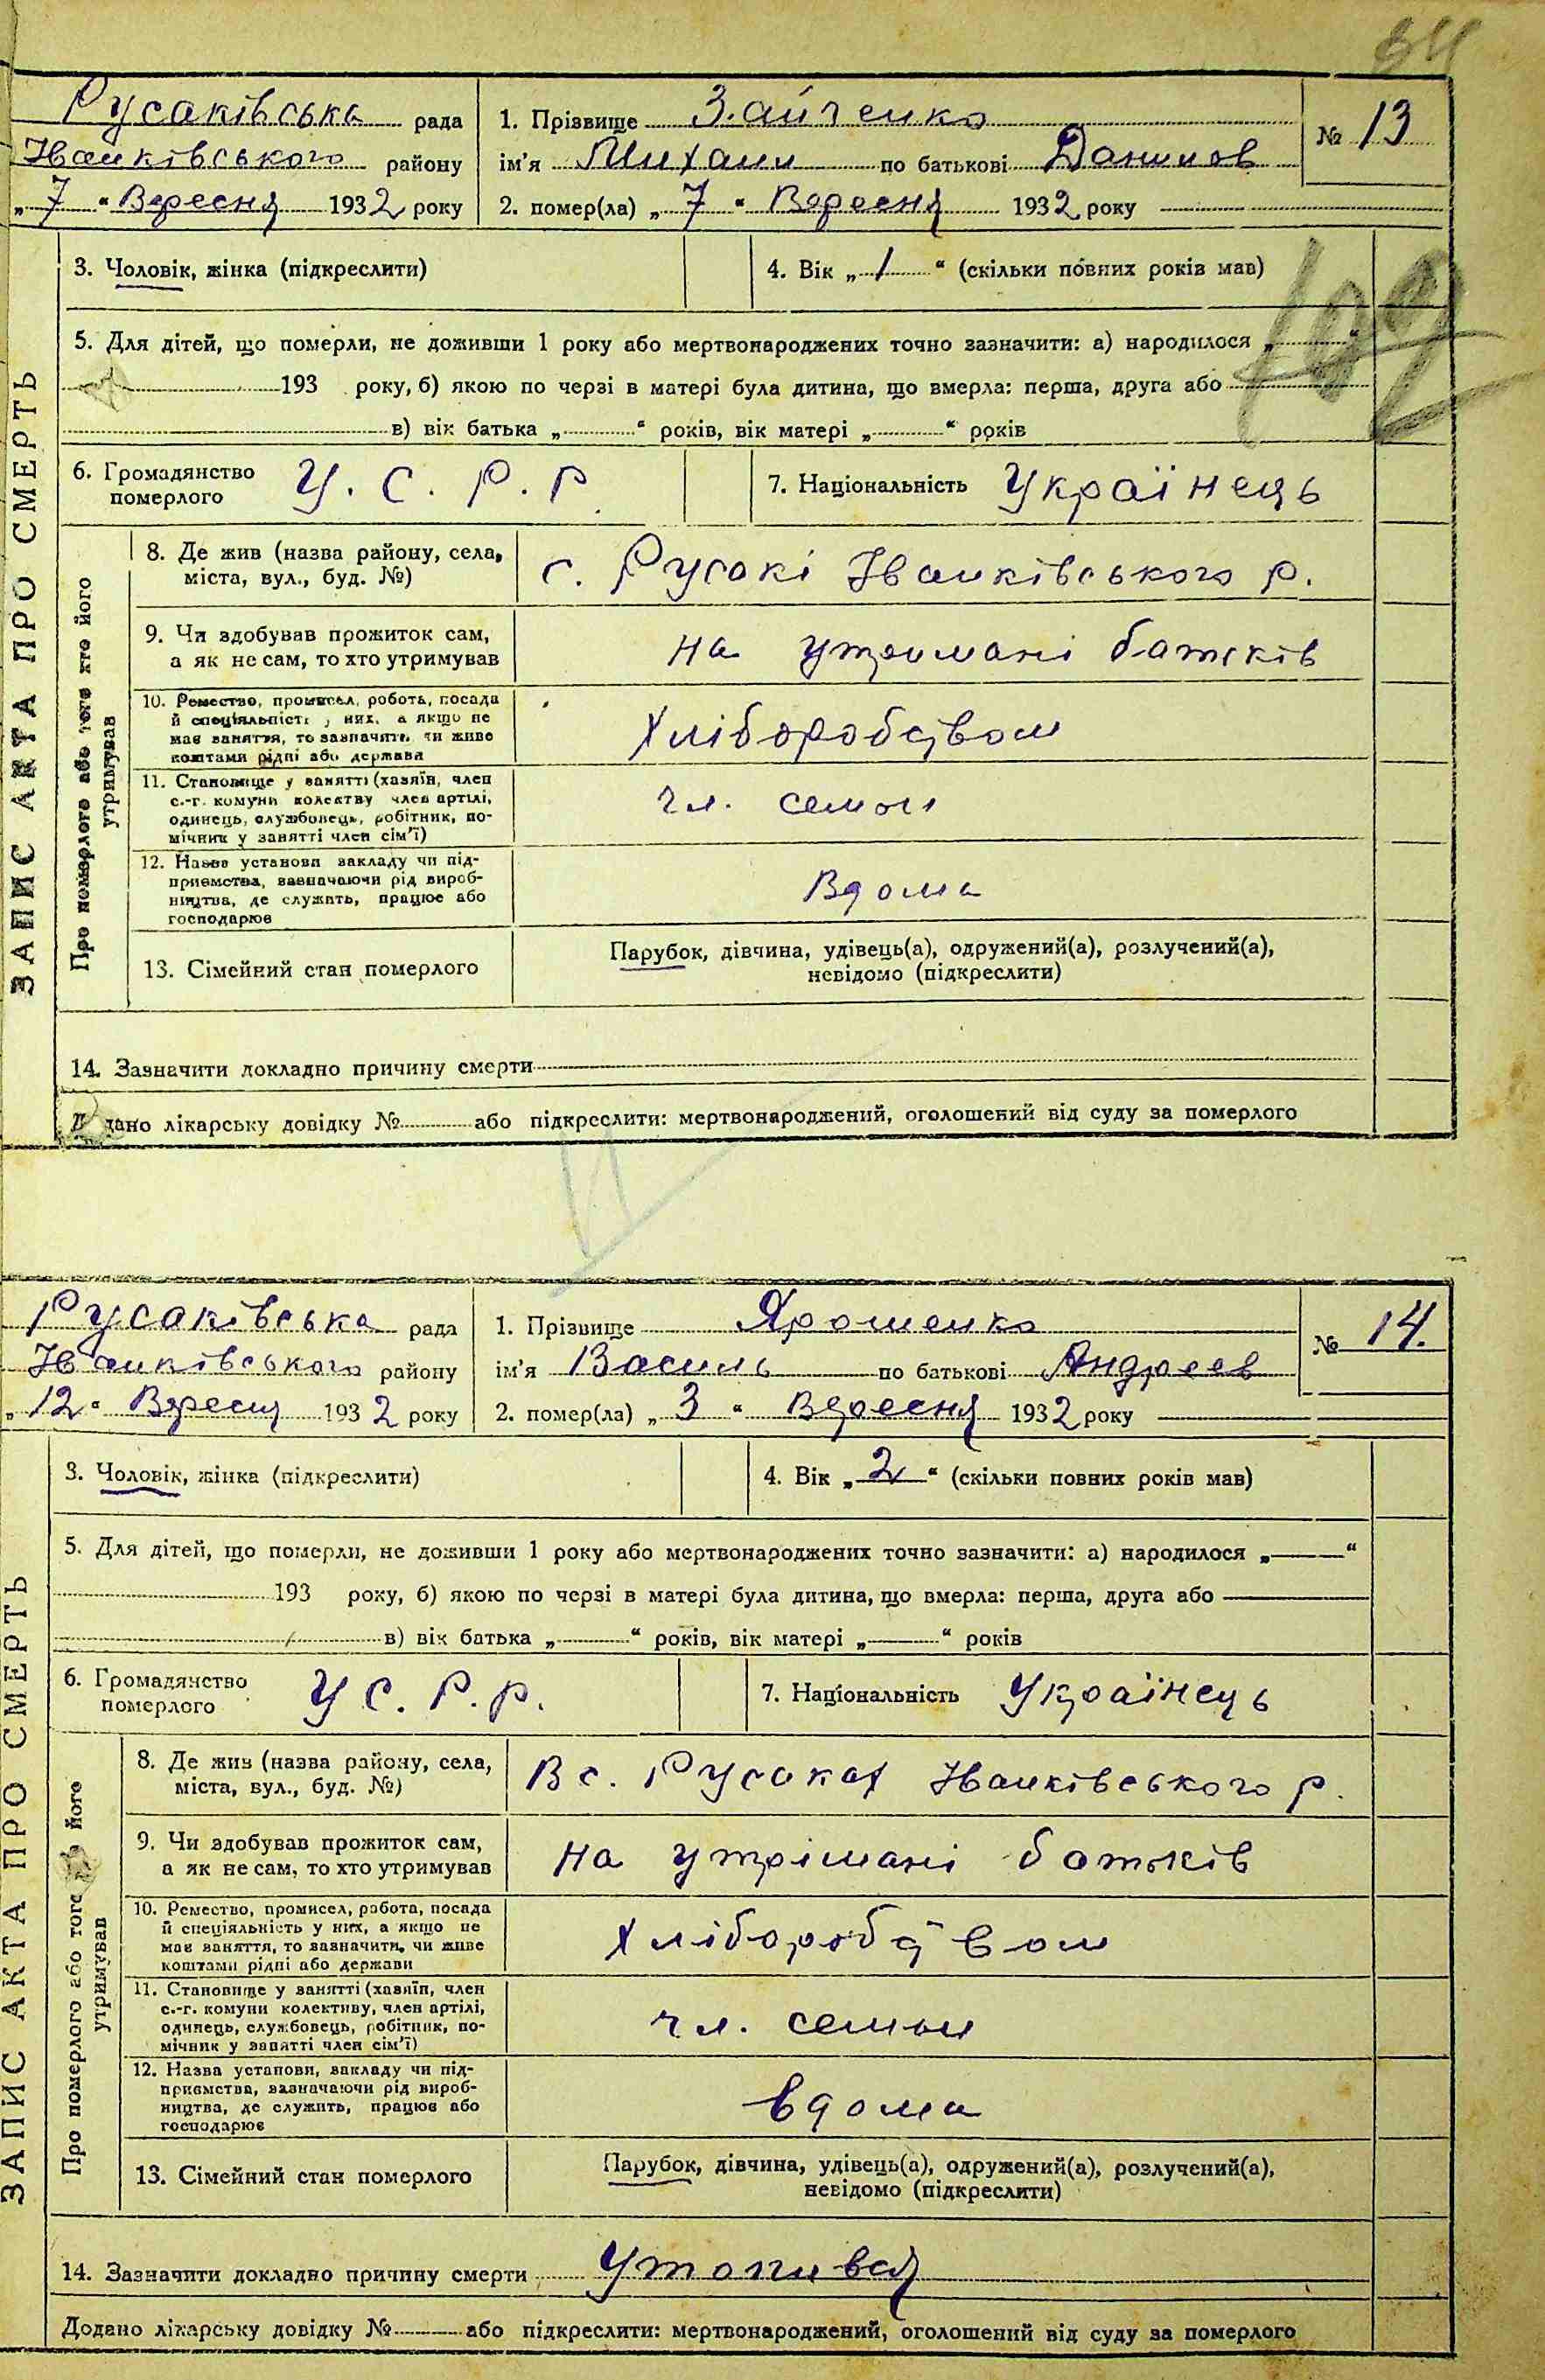 34
Русаківська рада
Іванківського району
„ 7 “ Вересня 1932 року
1. Прізвище Зайченко
ім'я Михаил по батькові Данилов
2. помер(ла) „ 7 “ Вересня 1932 року
№ 13
ЗАПИС АКТА ПРО СМЕРТЬ
3. Чоловік, жінка (підкреслити)
4. Вік „ 1 “ (скільки повних років мав)
5. Для дітей, що померли, не доживши 1 року або мертвонароджених точно зазначити: а) народилося „ “
193 року, б) якою по черзі в матері була дитина, що вмерла: перша, друга або
в) вік батька „ “ років, вік матері „ “ років
6. Громадянство
померлого
У. С. Р. Р
7. Національність Українець
Про померлого або того хто його
утримував
8. Де жив (назва району, села,
міста, вул., буд. №)
с. Русакі Іванківського р.
9. Чи здобував прожиток сам,
а як не сам, то хто утримував
на утримані батьків
10. Ремество, промисел, робота, посада
й спеціяльність у них, а якщо не
має заняття, то зазначити, чи живе
коштами рідні або держава
Хліборобством
11. Становище у занятті (хазяїн, член
с.-г. комуни колективу член артілі,
одинець, службовець, робітник, по-
мічник у занятті член сім'ї)
чл. семьи
12. Назва установи закладу чи під-
приємства, зазначаючи рід вироб-
ництва, де служить, працює або
господарює
Вдома
13. Сімейний стан померлого
Парубок, дівчина, удівець(а), одружений(а), розлучений(а),
невідомо (підкреслити)
14. Зазначити докладно причину смерти
Додано лікарську довідку № або підкреслити: мертвонароджений, оголошений від суду за померлого
Русаківська рада
Іванківського району
„ 12 “ Вересня 1932 року
1. Прізвище Ярошенко
ім'я Василь по батькові Андреев
2. помер(ла) „ 3 “ Вересня 1932 року
№ 14.
ЗАПИС АКТА ПРО СМЕРТЬ
3. Чоловік, жінка (підкреслити)
4. Вік „ 2 “ (скільки повних років мав)
5. Для дітей, що померли, не доживши 1 року або мертвонароджених точно зазначити: а) народилося „ “
193 року, б) якою по черзі в матері була дитина, що вмерла: перша, друга або
в) вік батька „ “ років, вік матері „ “ років
6. Громадянство
померлого
У С. Р. Р.
7. Національність Українець
Про померлого або того його
утримував
8. Де жив (назва району, села,
міста, вул., буд. №)
В с. Русаках Іванківського р.
9. Чи здобував прожиток сам,
а як не сам, то хто утримував
на утрімані батьків
10. Ремество, промисел, робота, посада
й спеціяльність у них, а якщо не
має заняття, то зазначити, чи живе
коштами рідні або держави
Хліборобством
11. Становище у занятті (хазяїн, член
с.-г. комуни колективу, член артілі,
одинець, службовець, робітник, по-
мічник у занятті член сім'ї)
чл. семьи
12. Назва установи, закладу чи під-
приємства, зазначаючи рід вироб-
ництва, де служить, працює або
господарює
вдома
13. Сімейний стан померлого
Парубок, дівчина, удівець(а), одружений(а), розлучений(а),
невідомо (підкреслити)
14. Зазначити докладно причину смерти Утопився
Додано лікарську довідку № або підкреслити: мертвонароджений, оголошений від суду за померлого